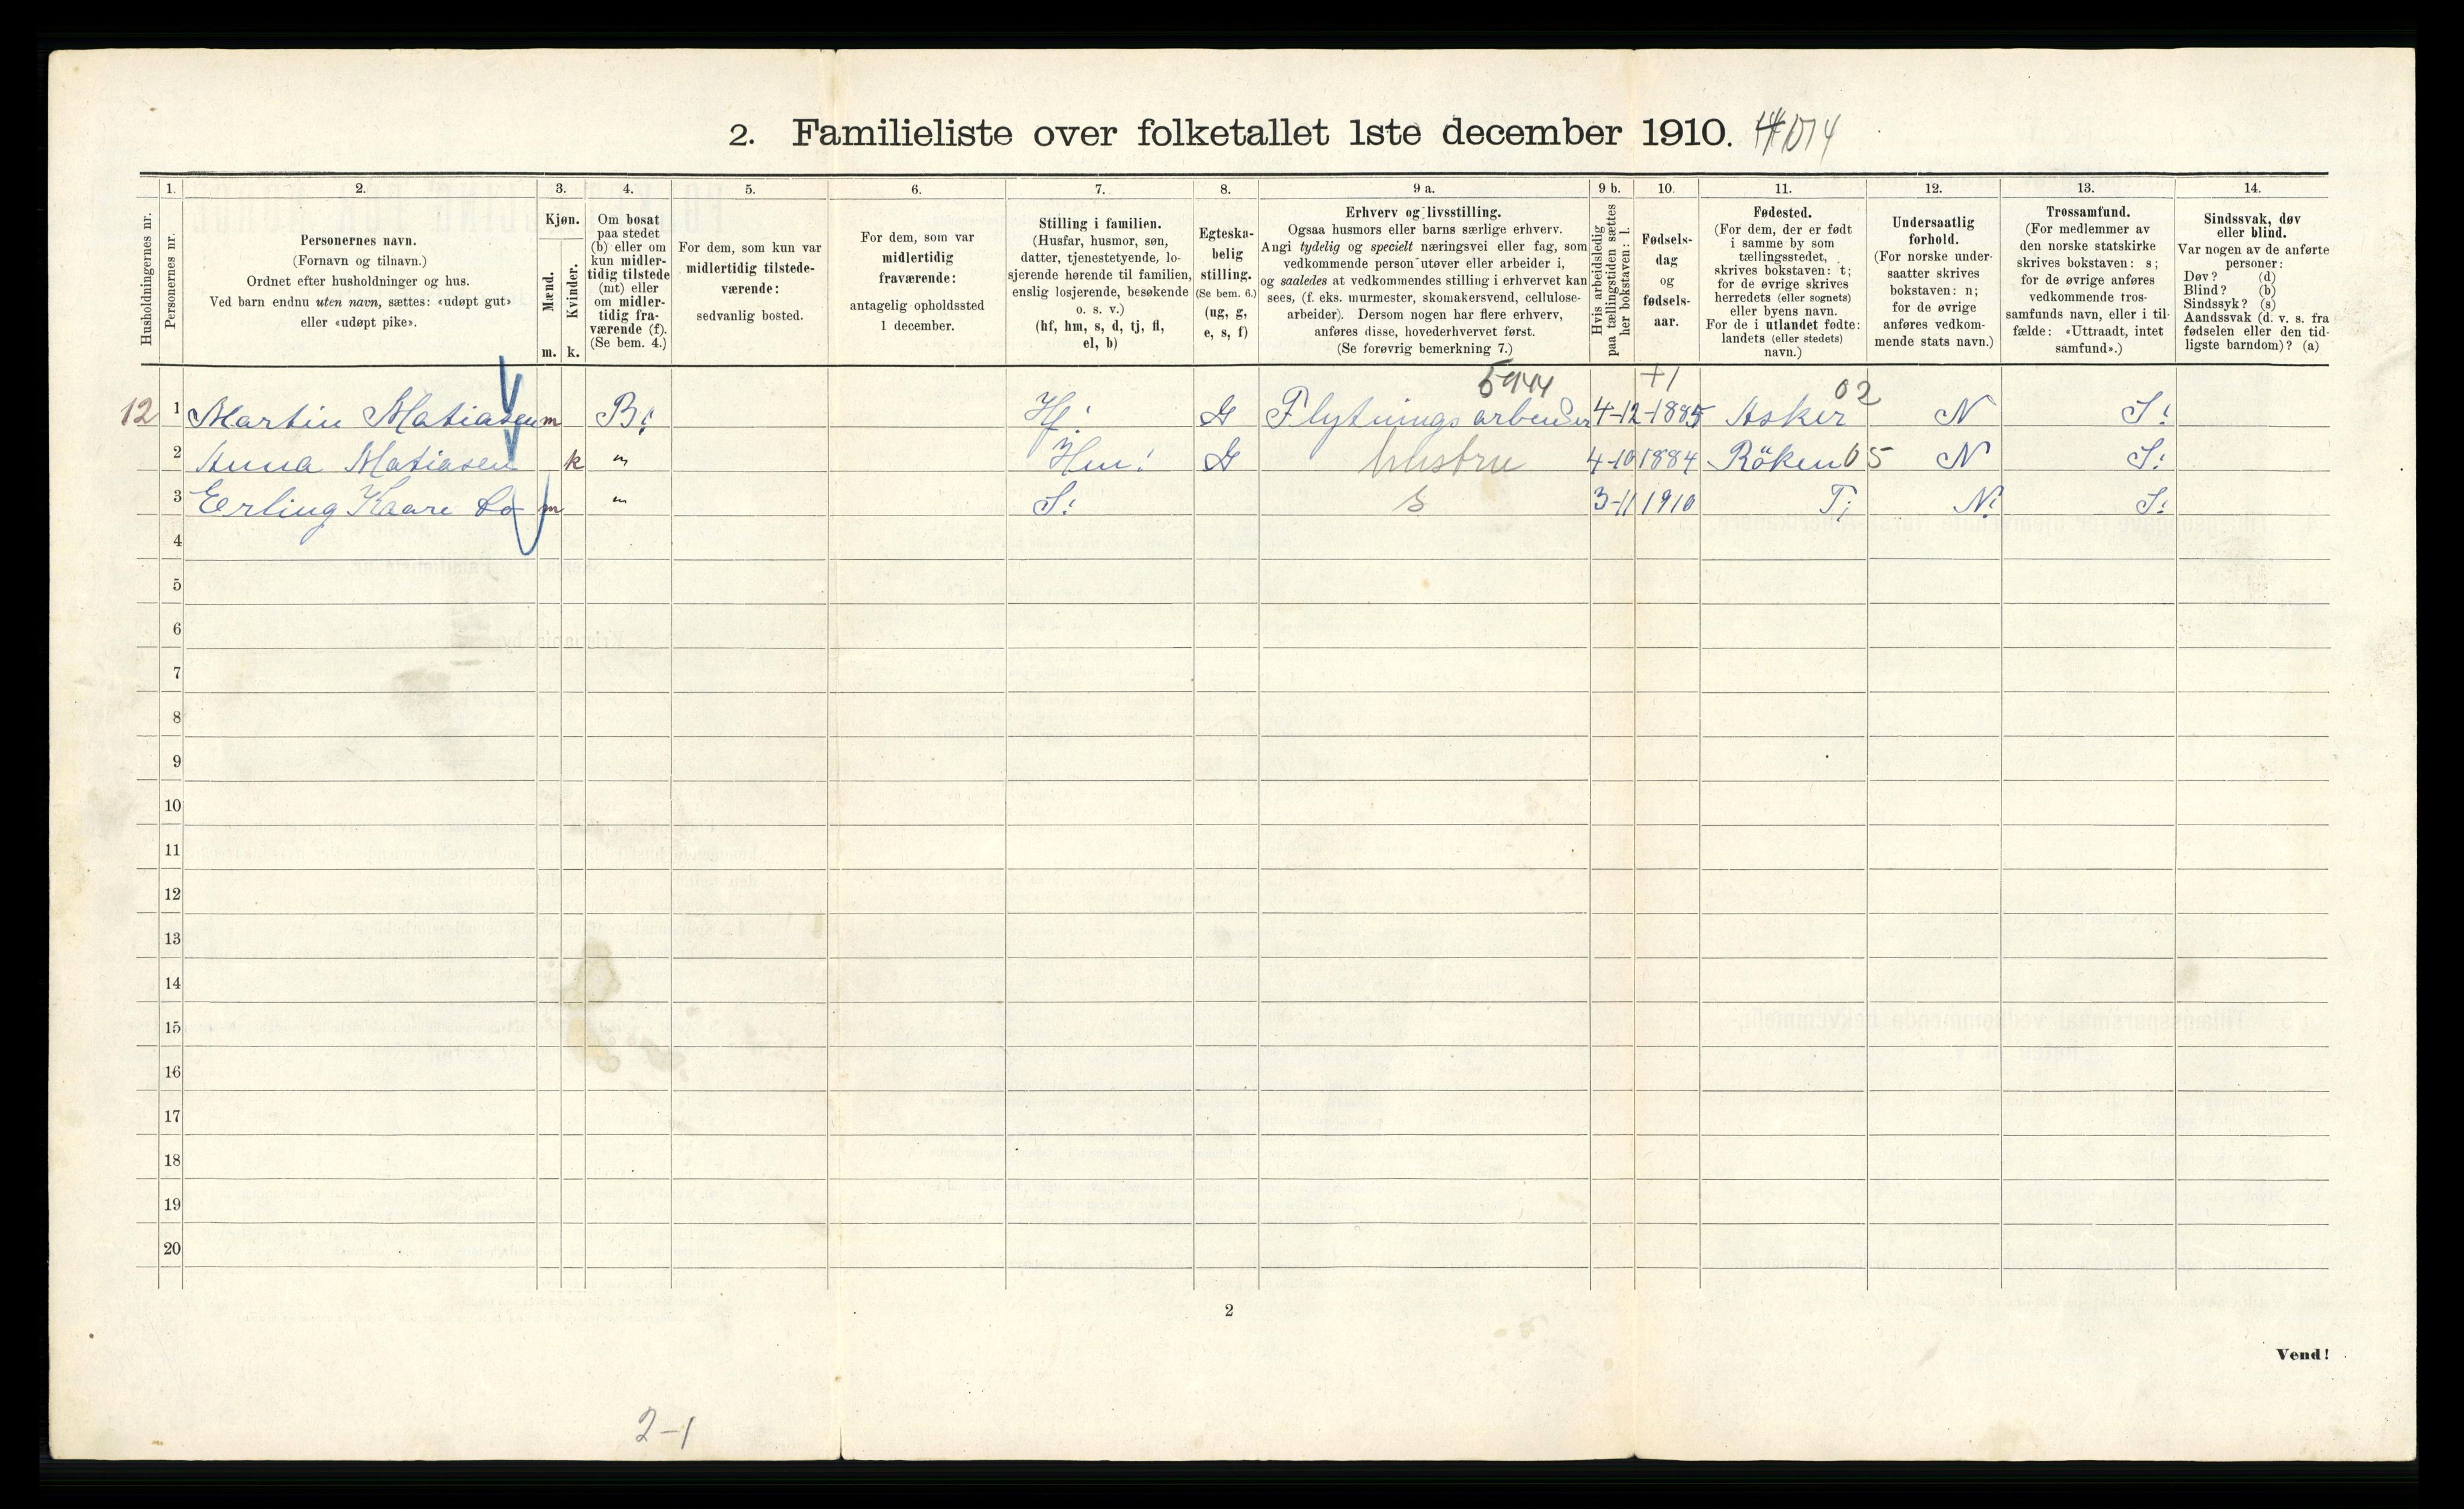 2. Familieliste over folketallet 1ste december 1910.
1. 2. 3. 4. 5. 6. 7. 8. 9 a. 9 b. 10. 11. 12. 13. 14.
Husholdningernes nr.
Personernes nr.
Personernes navn.
(Fornavn og tilnavn.)
Ordnet efter husholdninger og hus.
Ved barn endnu uten navn, sættes: «udøpt gut»
eller «udøpt pike».
Kjøn.
Mænd.
Kvinder.
m. k.
Om bosat
paa stedet
(b) eller om
kun midler-
tidig tilstede
(mt) eller
om midler-
tidig fra-
værende (f).
(Se bem. 4.)
For dem, som kun var
midlertidig tilstede-
værende:
sedvanlig bosted.
For dem, som var
midlertidig
fraværende:
antagelig opholdssted
1 december.
Stilling i familien.
(Husfar, husmor, søn,
datter, tjenestetyende, lo-
sjerende hørende til familien,
enslig losjerende, besøkende
o. s. v.)
(hf, hm, s, d, tj, fl,
el, b)
Egteska-
belig
stilling.
(Se bem. 6.)
(ug, g,
e, s, f)
Erhverv og livsstilling.
Ogsaa husmors eller barns særlige erhverv.
Angi tydelig og specielt næringsvei eller fag, som
vedkommende person utøver eller arbeider i,
og saaledes at vedkommendes stilling i erhvervet kan
sees, (f. eks. murmester, skomakersvend, cellulose-
arbeider). Dersom nogen har flere erhverv,
anføres disse, hovederhvervet først.
(Se forøvrig bemerkning 7.)
Hvis arbeidsledig
paa tællingstiden sættes
her bokstaven: l.
Fødsels-
dag
og
fødsels-
aar.
Fødested.
(For dem, der er født
i samme by som
tællingsstedet,
skrives bokstaven: t;
for de øvrige skrives
herredets (eller sognets)
eller byens navn.
For de i utlandet fødte:
landets (eller stedets)
navn.)
Undersaatlig
forhold.
(For norske under-
saatter skrives
bokstaven: n;
for de øvrige
anføres vedkom-
mende stats navn.)
Trossamfund.
(For medlemmer av
den norske statskirke
skrives bokstaven: s;
for de øvrige anføres
vedkommende tros-
samfunds navn, eller i til-
fælde: «Uttraadt, intet
samfund».)
Sindssvak, døv
eller blind.
Var nogen av de anførte
personer:
Døv? (d)
Blind? (b)
Sindssyk? (s)
Aandssvak (d. v. s. fra
fødselen eller den tid-
ligste barndom)? (a)
5944 +1 02
12 1 Martin Matiasen m B: Hf: G Flytningsarbeider 4-12-1885 Asker N S:
2 Anna Matiasen k " Hm: G hustru 4-10 1884 Röken 05 N S:
3 Eerling Kaare Do m " S: s 3-11 1910 T: N: S:
4
5
6
7
8
9
10
11
12
13
14
15
16
17
18
19
20
2
Vend!
2-1